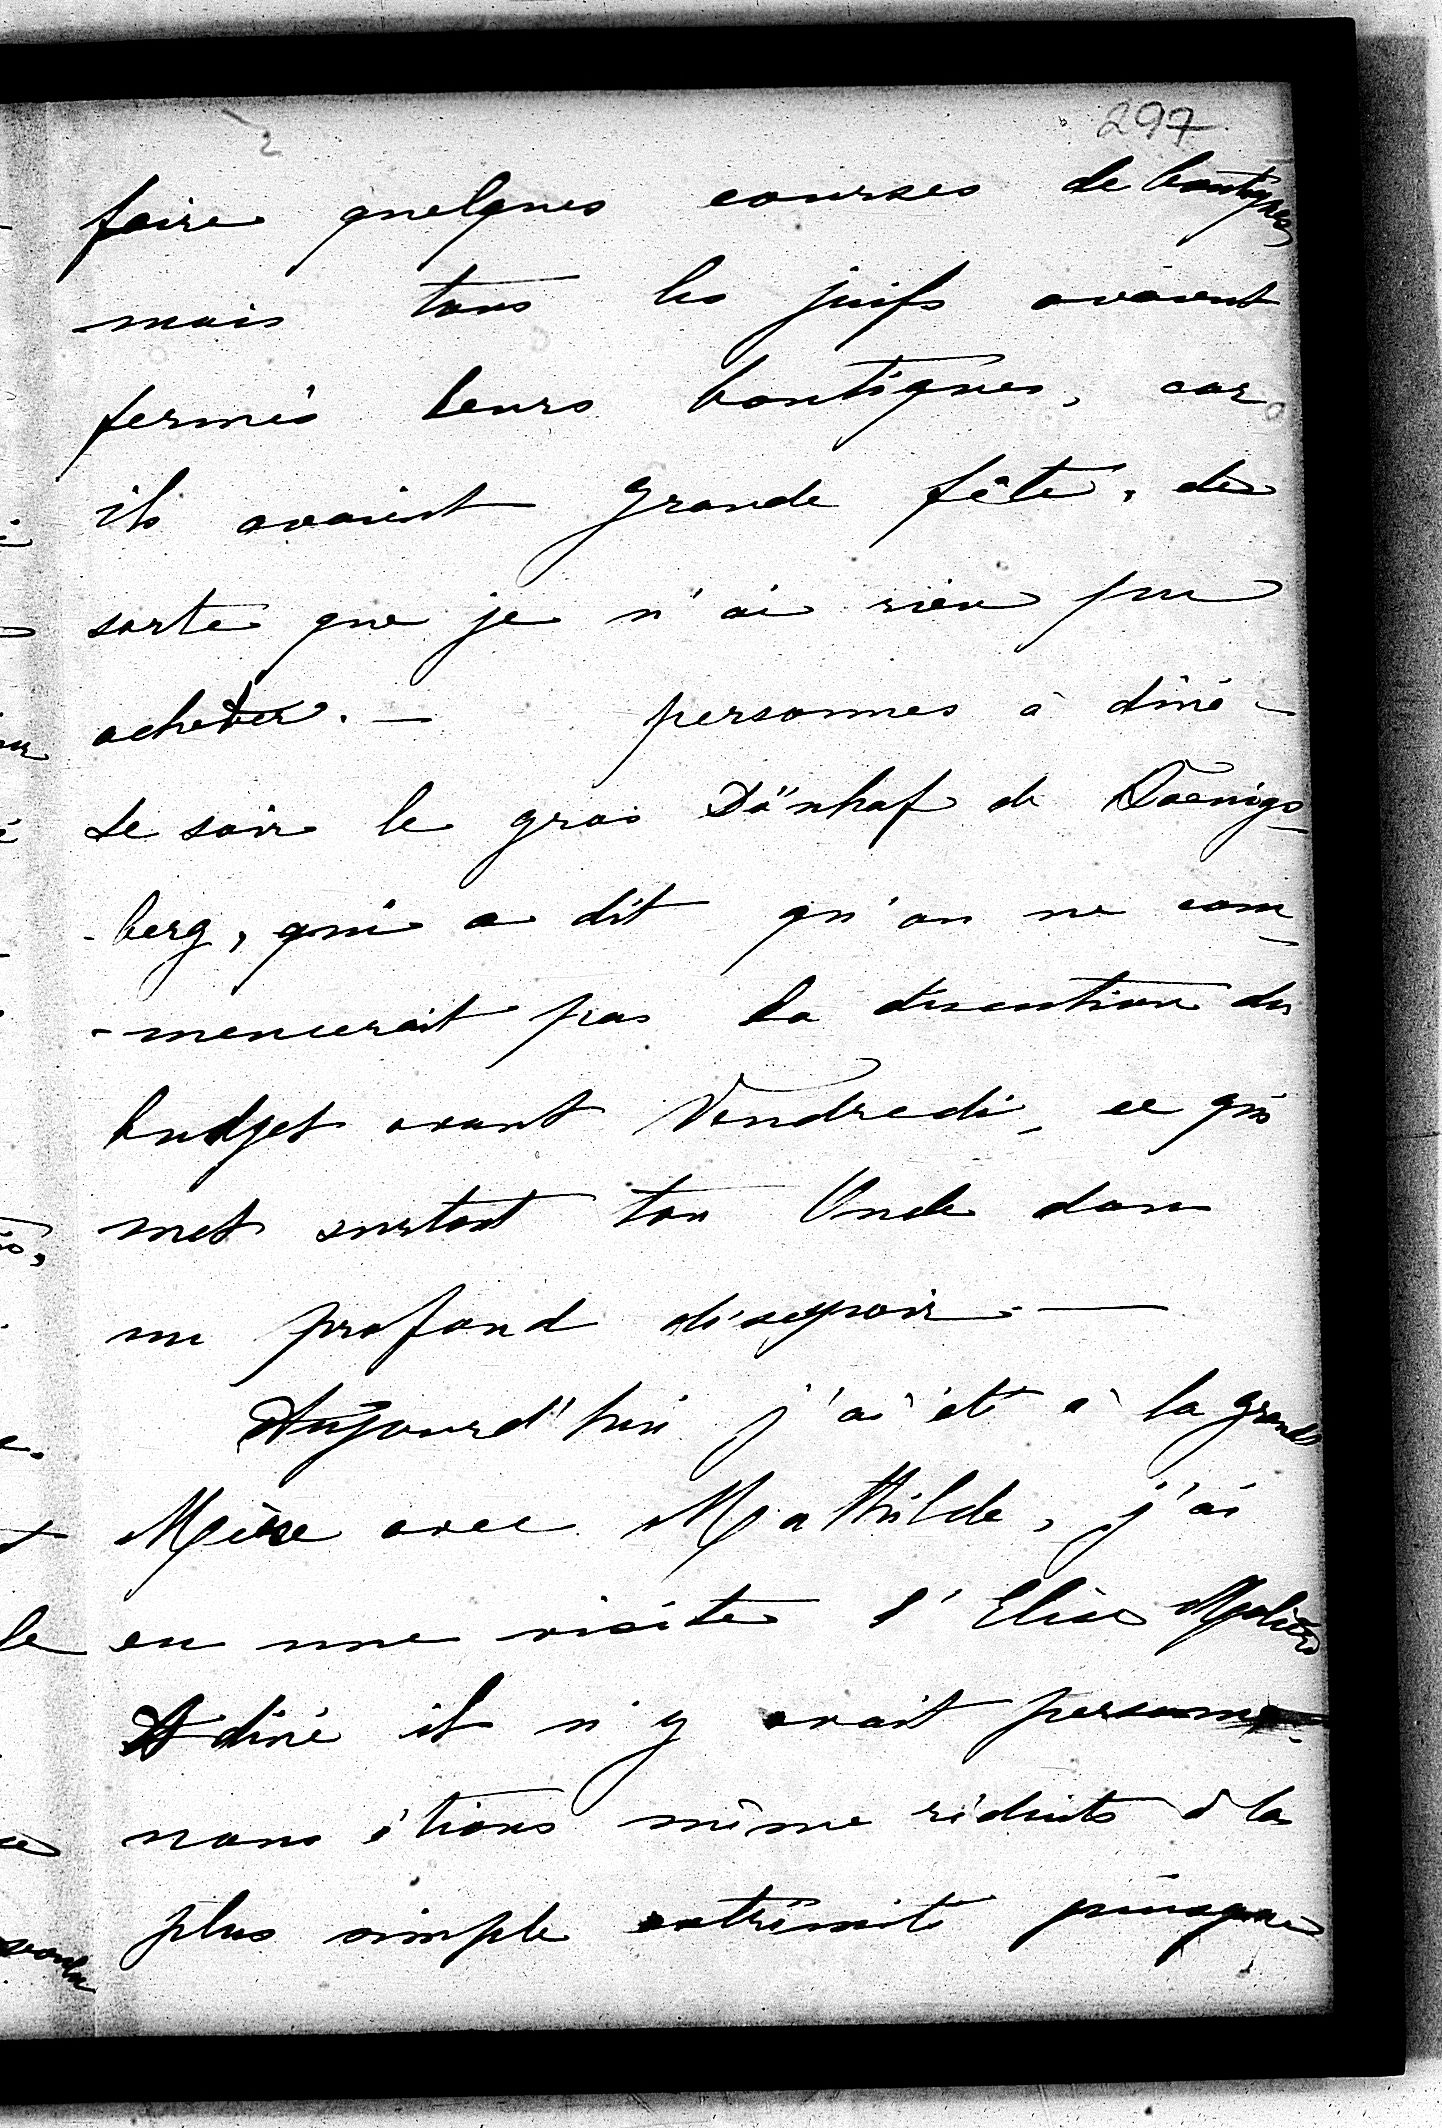 297
faire quelques courses de boutiques
mais tous les juifs avaient
fermés leurs boutiques, car
ils avaient grande fête, de
sorte que je n'ai rien pu
acheter. — personnes à dîné -
Le soir le gros Dönhof de Koenigs-
-berg, qui a dit qu'on ne com-
-mencerait pas la discution du
budget avant Vendredi, ce qui
met surtout ton Oncle dans
un profond désespoir. —
Aujourd'hui j'ai été à la grande
Mère avec Mathilde, j'ai
eu une visite d'Elise
A diné il n'y avait personne
nous étions même réduits à la
plus simple extrémité puisque